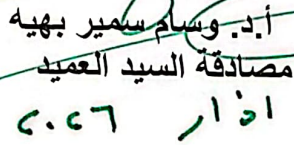 أ.د. وسام سمير بهيه
مصادقة السيد العميد
اذار ٢٠٢٦